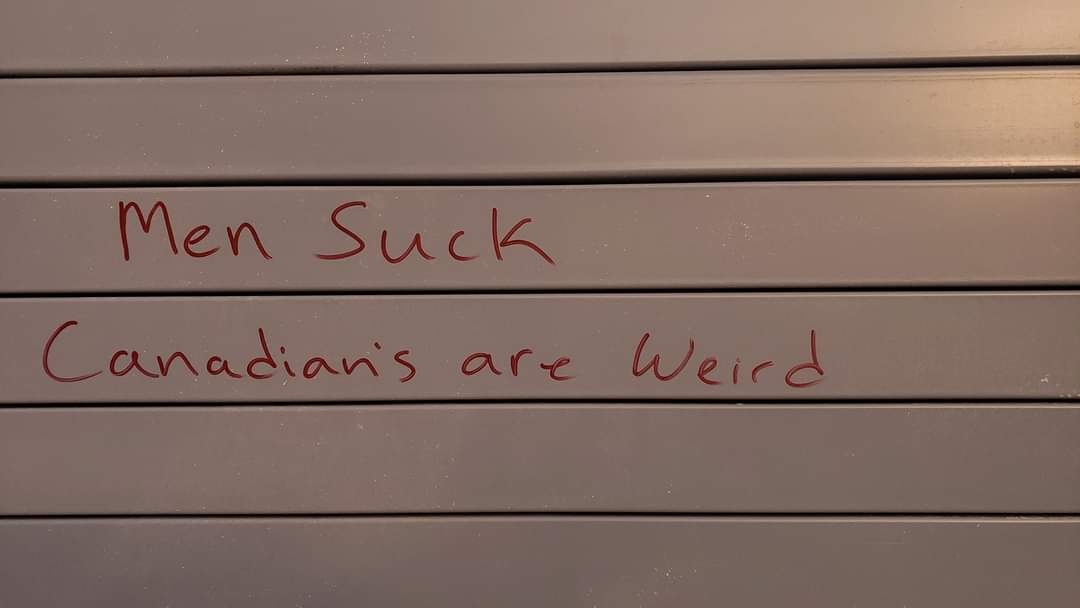 Men Suck
Canadian's are Weird